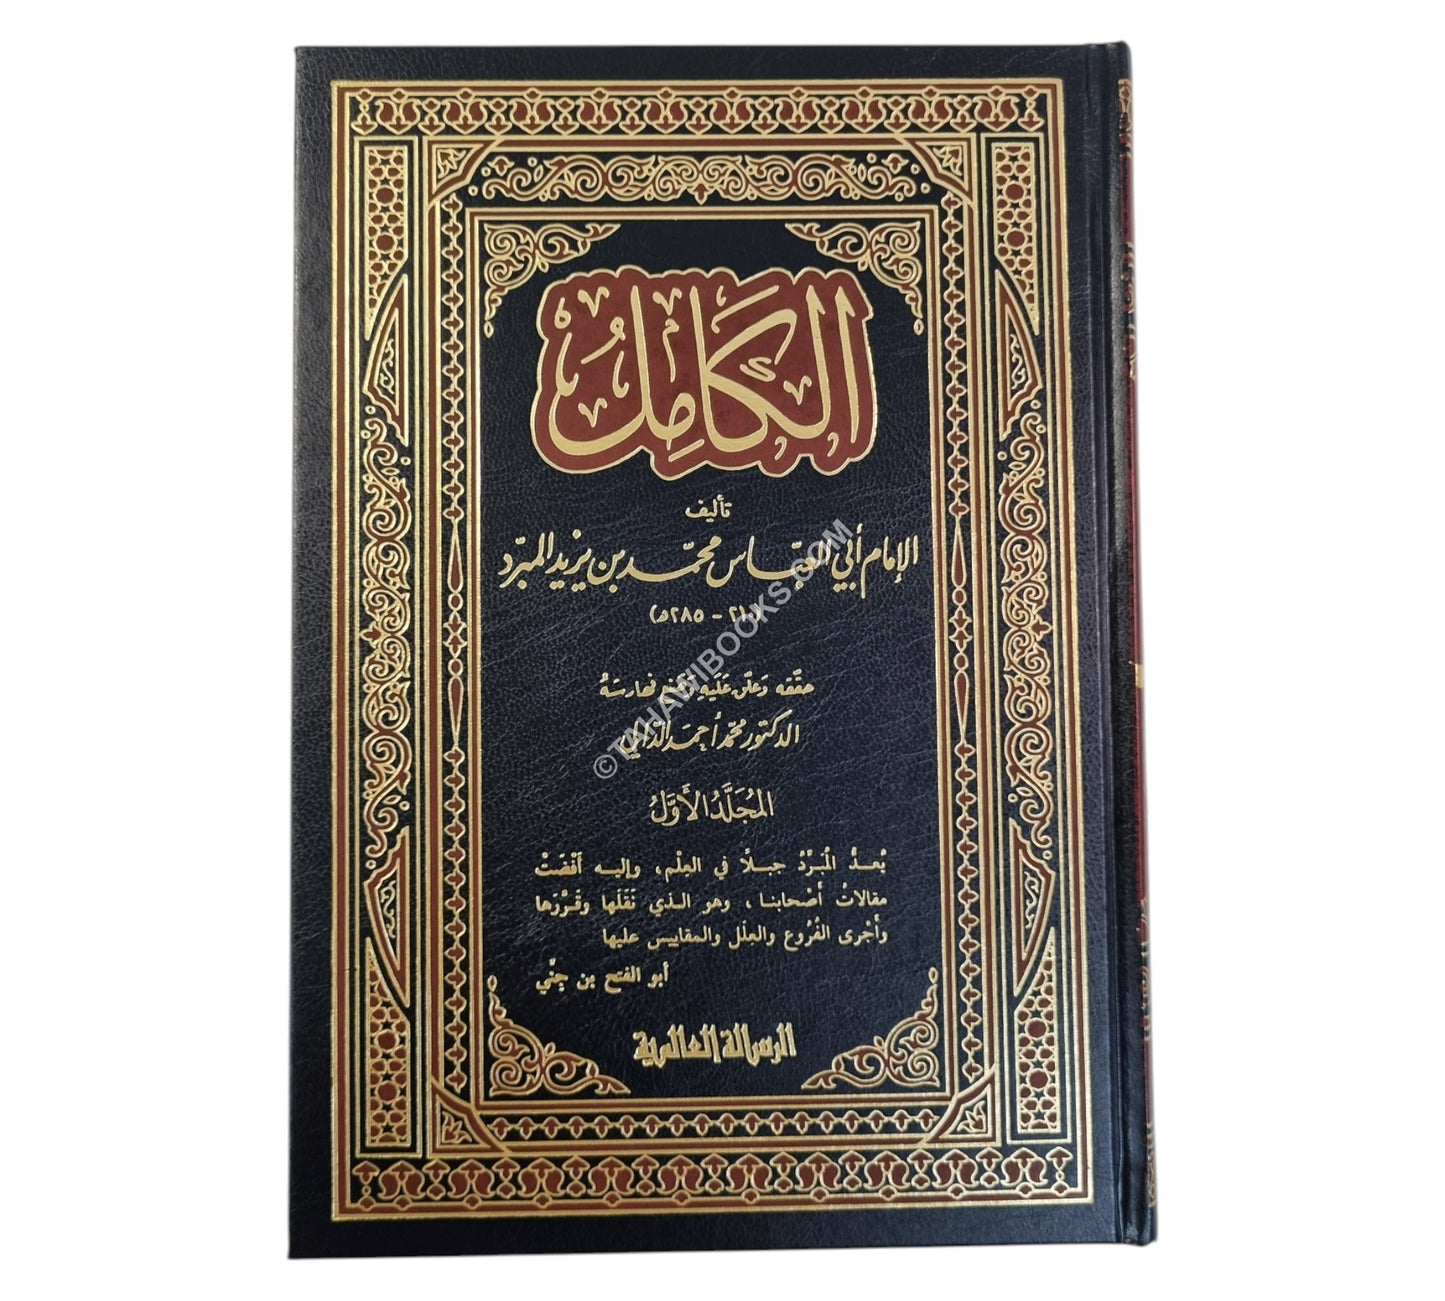 الكَامِلُ
تأليف
الإمام أبي العبّاس محمّد بن يزيد المبرّد
(٢١٠ - ٢٨٥هـ)
حقّقه وَعلّق عَلَيهِ وَصنع فهَارسَهُ
الدكتور محمّد أحمَد الدّالي
المُجَلَّدُ الأَوَّلُ
يُعـدُّ المُبَـرِّدُ جبـلاً في العِلْم، وإليـه أَفْضَتْ
مقالاتُ أَصْحابنـا، وهو الـذي نَقَلَها وقَـرَّرَها
وأَجْرى الفُروعَ والعِلَل والمقاييس عليها
أبو الفتح بن جِنِّي
الرسالة العالمية
©TAHAWIBOOKS.COM